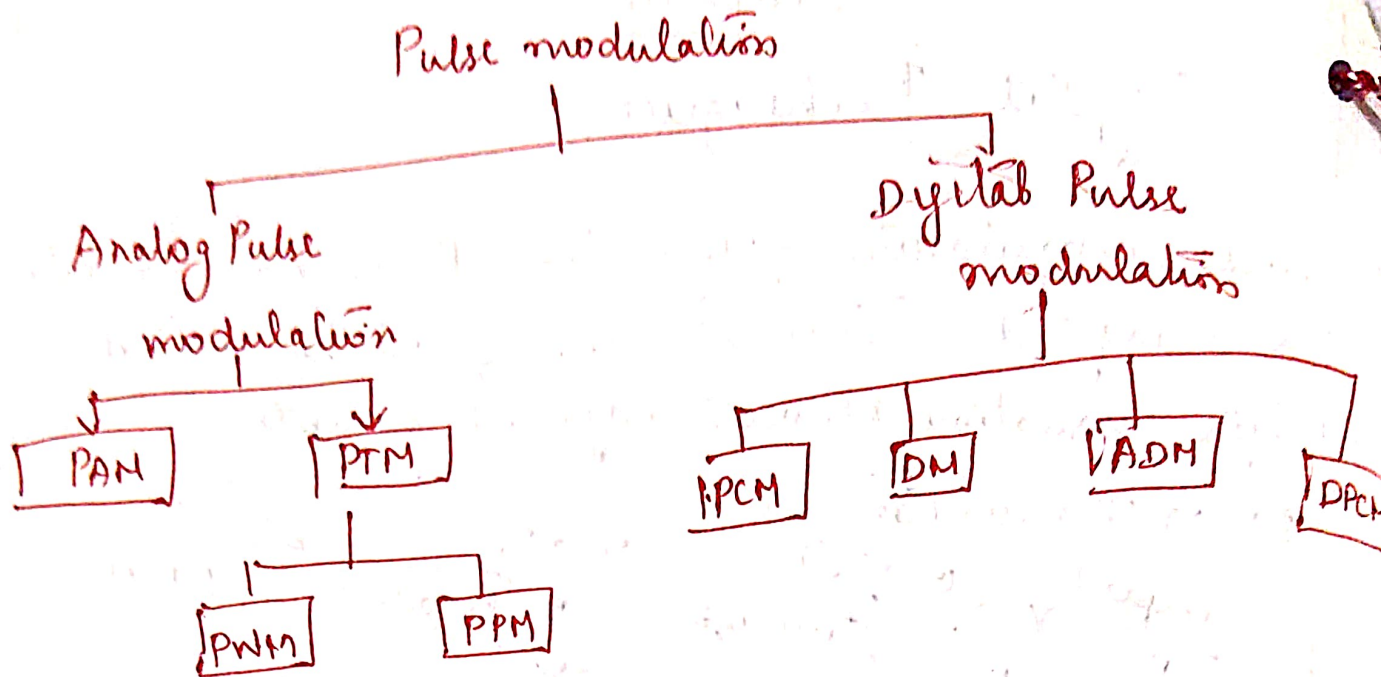 Pulse modulation
Analog Pulse
modulation
Digital Pulse
modulation
PAM
PTM
PCM
DM
ADM
DPCM
PWM
PPM